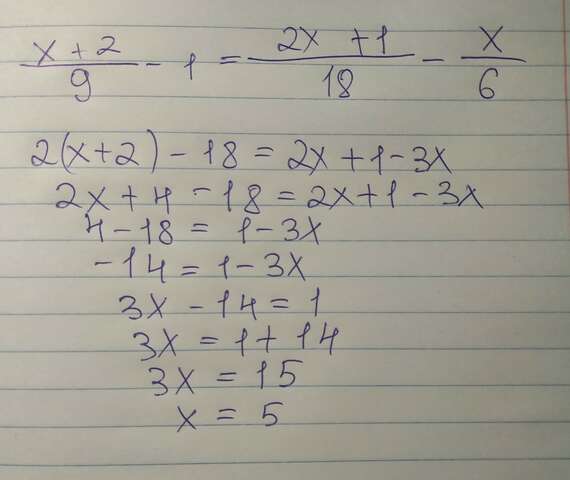 (x + 2)/9 - 1 = (2x + 1)/18 - x/6
2(x+2) - 18 = 2x + 1 - 3x
2x + 4 - 18 = 2x + 1 - 3x
4 - 18 = 1 - 3x
-14 = 1 - 3x
3x - 14 = 1
3x = 1 + 14
3x = 15
x = 5